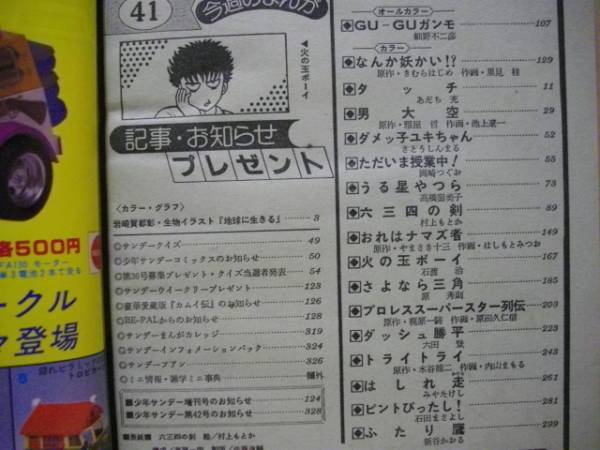 各500円
FA130 モーター
単3電池2本で走る
ークル
登場
41
今週のまんが
◀火の玉ボーイ
記事・お知らせ
プレゼント
〈カラー・グラフ〉
岩崎賀都彰・生物イラスト『地球に生きる』 3
◎サンデークイズ 49
◎少年サンデーコミックスのお知らせ 50
◎第36号募集プレゼント・クイズ当選者発表 54
◎サンデーウイークリープレゼント 123
◎豪華愛蔵版『カムイ伝』のお知らせ 126
◎BE-PALからのお知らせ 128
◎サンデーまんがカレッジ 319
◎サンデーインフォメーションパック 324
◎サンデーファン 326
◎ミニ情報・雑学ミニ事典 欄外
■少年サンデー増刊号のお知らせ 124
■少年サンデー第42号のお知らせ 328
■表紙■ 六三四の剣 絵/村上もとか
オールカラー
GU-GUガンモ 107
細野不二彦
カラー
なんか妖かい!? 129
原作・きむらはじめ 作画・里見桂
タッチ 11
あだち充
男大空 29
原作・雁屋哲 作画・池上遼一
ダメッ子ユキちゃん 52
さとうしんまる
ただいま授業中! 55
岡崎つぐお
うる星やつら 73
高橋留美子
六三四の剣 89
村上もとか
おれはナマズ者 149
原作・やまさき十三 作画・はしもとみつお
火の玉ボーイ 167
石渡治
さよなら三角 185
原秀則
プロレススーパースター列伝 203
原作・梶原一騎 作画・原田久仁信
ダッシュ勝平 225
六田登
トライトライ 243
原作・水谷龍二 作画・内山まもる
はしれ走 261
みやたけし
ピントぴったし! 281
石田まさよし
ふたり鷹 299
新谷かおる